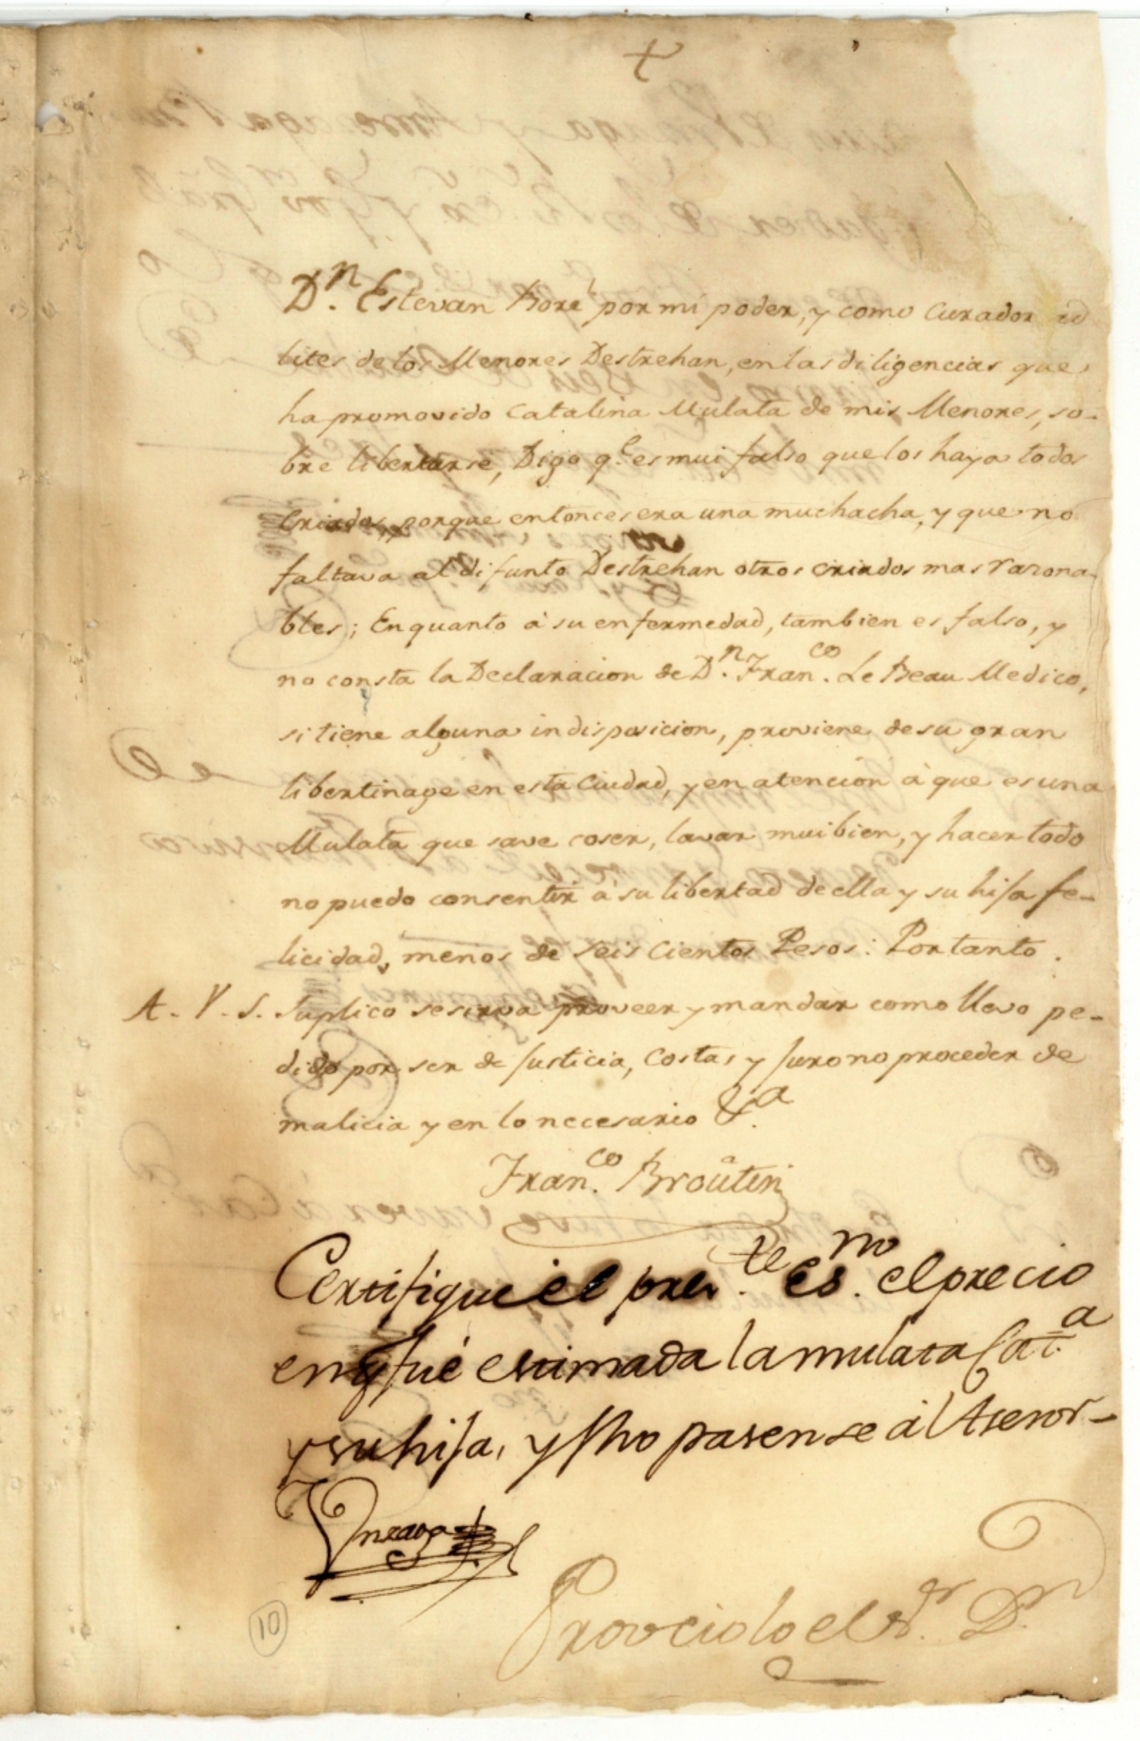 +
Dn. Estevan Boré por mi poder, y como Curador ad
lites de los Menores Destrehan, en las diligencias que
ha promovido Catalina Mulata de mis Menores, so-
bre libertarse, Digo qe. es mui falso que los haya todos
Criados, porque entonces era una muchacha, y que no
faltava al difunto Destrehan otros criados mas razona-
bles; En quanto á su enfermedad, tambien es falso, y
no consta la Declaracion de Dn. Franco. Le Beau Medico,
si tiene alguna indisposicion, proviene de su gran
libertinage en esta Ciudad, y en atencion á que es una
Mulata que save coser, lavar mui bien, y hacer todo
no puedo consentir á su libertad de ella y su hija fe-
licidad, menos de seis cientos Pesos: Por tanto.
A. V. S. Suplico se sirva proveer y mandar como llevo pe-
dido por ser de Justicia, Costas y Juro no proceder de
malicia y en lo necesario &a.
Franco. Broutin
Certifique el preste. esno. el precio
en q fué estimada la mulata Cata.
y su hija, y fho pasense al Asesor-
Unzaga
Proveiolo el Sr. Dn
10